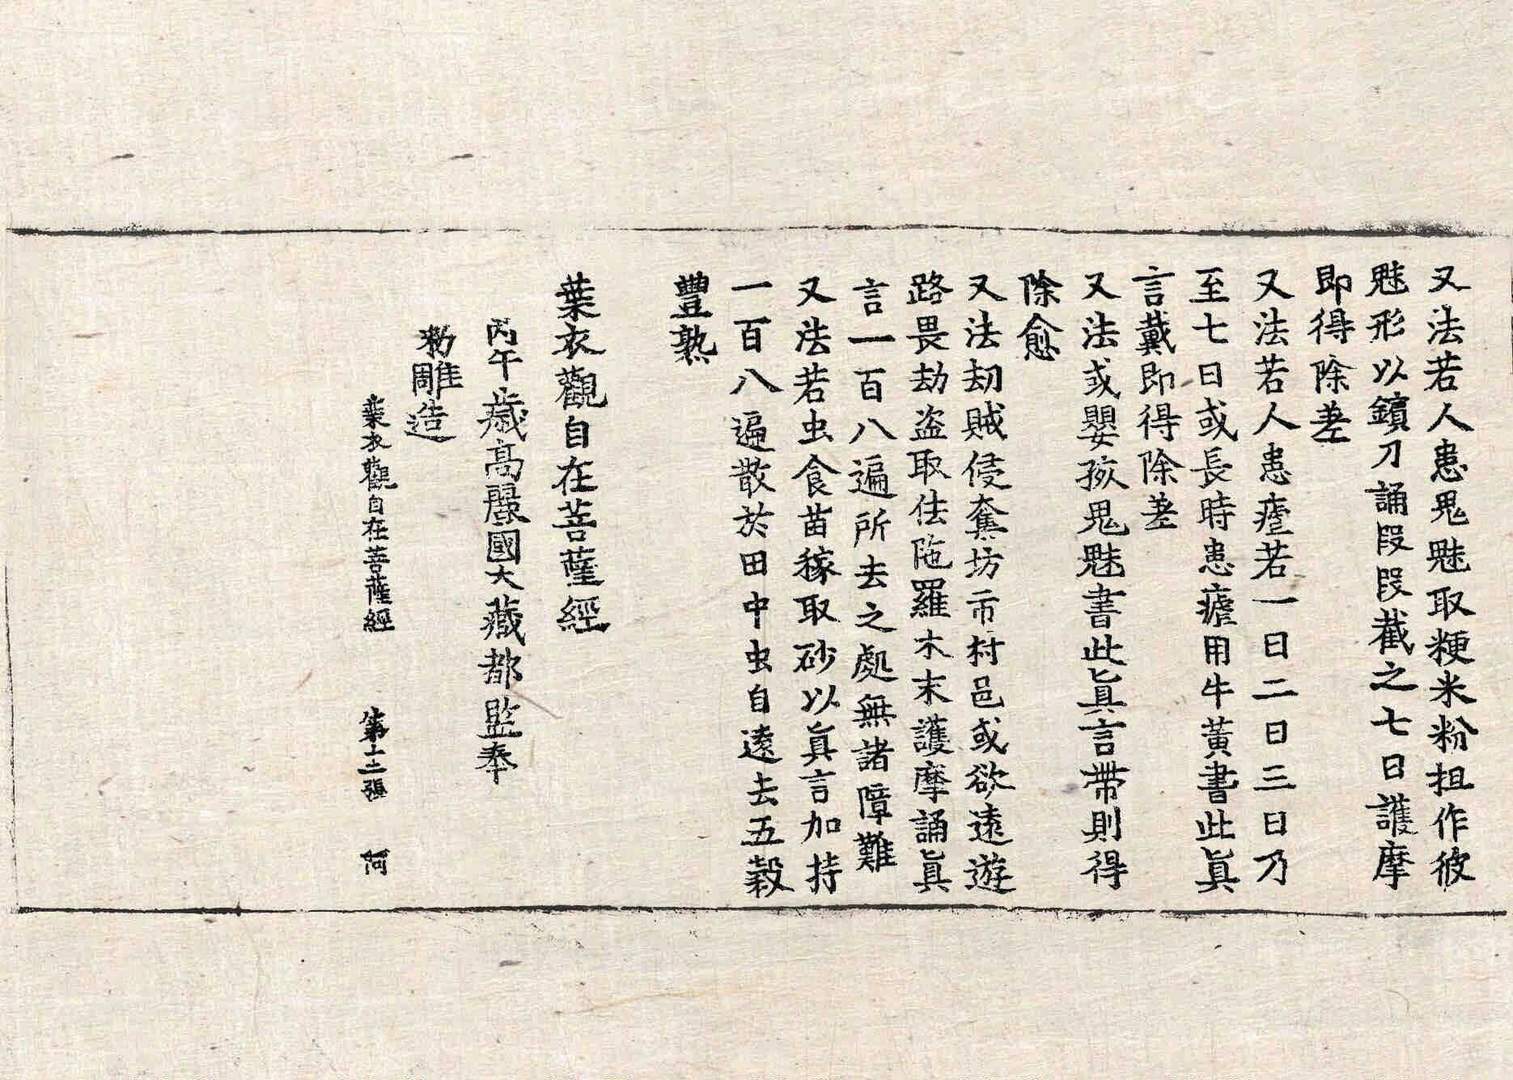 又法若人患鬼魅取粳米粉担作彼
魅形以鑌刀誦段段截之七日護摩
即得除差
又法若人患瘧若一日二日三日乃
至七日或長時患瘧用牛黃書此眞
言戴即得除差
又法或嬰孩鬼魅書此眞言帶則得
除愈
又法刧賊侵奪坊市村邑或欲遠遊
路畏劫盗取佉陁羅木末護摩誦眞
言一百八遍所去之處無諸障難
又法若虫食苗稼取砂以眞言加持
一百八遍散於田中虫自遠去五穀
豐熟
葉衣觀自在菩薩經
丙午歲高麗國大藏都監奉
勑雕造
葉衣觀自在菩薩經 第十二張 阿